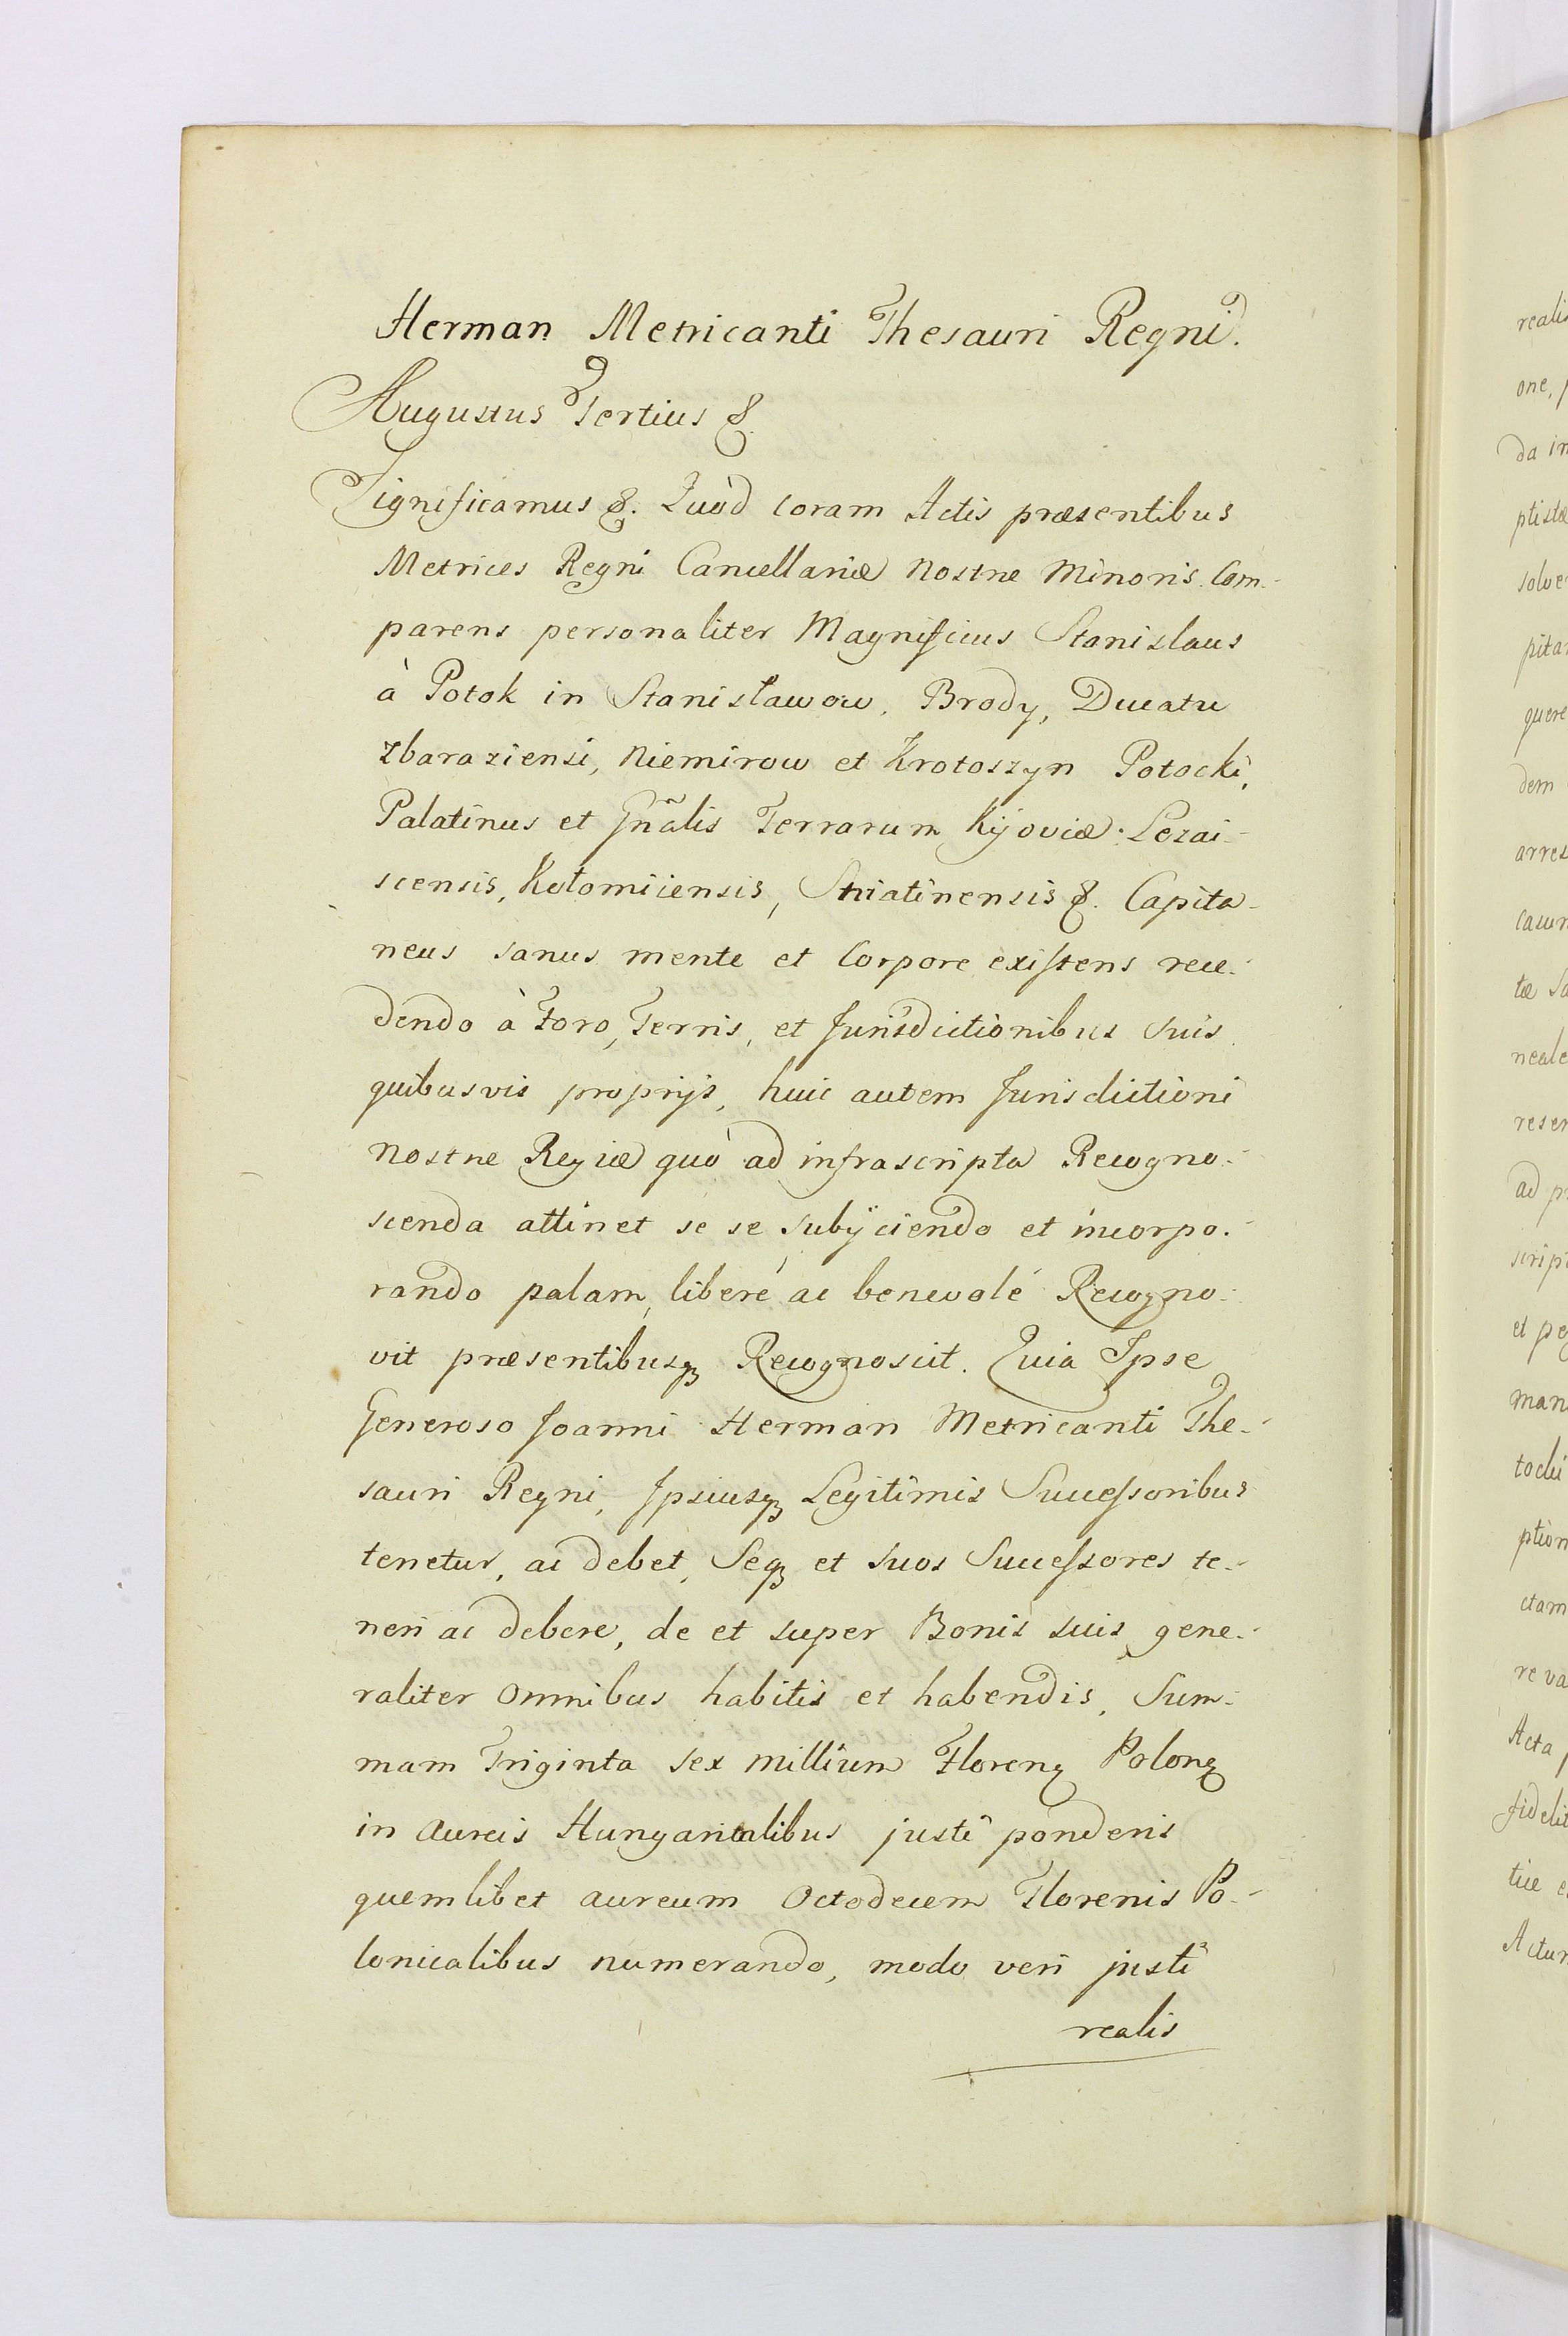 Herman Metricanti Thesauri Regni.
Augustus Tertius &.
Significamus &. Quòd coram Actis præsentibus
Metrices Regni Cancellariæ Nostræ Minoris Com-
parens personaliter Magnificus Stanislaus
à Potok in Stanisławow, Brody, Ducatu
Zbaraziensi, Niemirow et Krotoszyn Potocki,
Palatinus et Gñalis Terrarum Kijoviæ. Lezai-
scensis, Kołomiiensis, Sniatinensis &. Capita-
neus sanus mente et Corpore existens rece-
dendo à Foro, Terris, et Jurisdictionibus suis
quibusvis proprijs, huic autem Jurisdictioni
Nostræ Regiæ quò ad infrascripta Recogno-
scenda attinet se se subijciendo et incorpo-
rando palam, liberè ac benevolé Recogno-
vit præsentibusq; Recognoscit. Quia Ipse
Generoso Joanni Herman Metricanti The-
sauri Regni, Ipsiusq; Legitimis Successoribus
tenetur, ac debet, Seq; et suos Successores te-
neri ac debere, de et super Bonis suis gene-
raliter omnibus habitis et habendis, Sum-
mam Triginta sex millium Floren; Polon;
in Aureis Hungaricalibus justi ponderis
quemlibet aureum Octodecem Florenis Po-
lonicalibus numerando, modo veri justi
realis
realis
one, p
da in
ptistæ
solve
pita
quere
dem
arres
casun
tæ Sa
neale
reser
ad pr
scrip
et pe
man
tocki
ption
ctam
re va
Acta p
fidelit
tice e
Actum